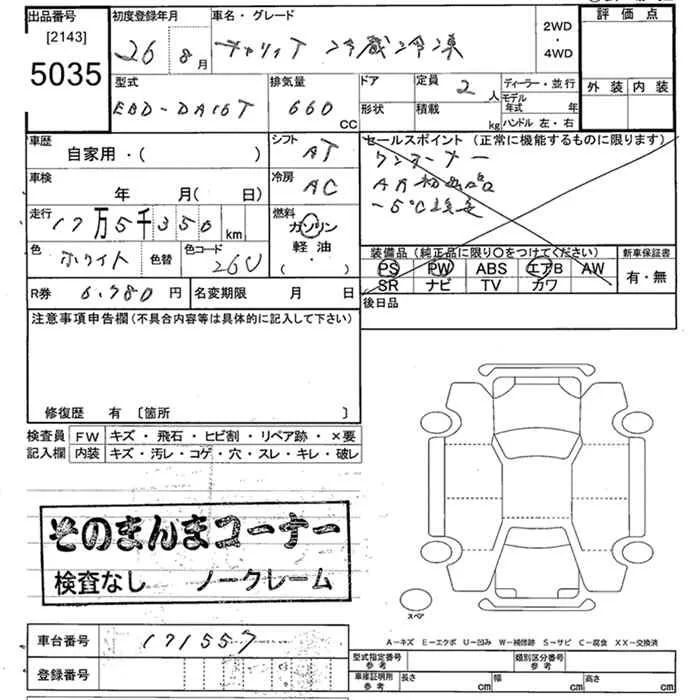 出品番号 初度登録年月 車名・グレード 評価点
[2143]
5035
26 8月 キャリイT 冷蔵冷凍 2WD・4WD
外装 内装
型式 排気量 ドア 定員 2人 ディーラー・並行
EBD-DA16T 660cc 形状 積載 kg モデル年式 年
ハンドル 左・右
車歴 シフト セールスポイント (正常に機能するものに限ります)
自家用・( ) AT ワンオーナー
車検 冷房
年 月( 日) AC
-5℃
走行 燃料
17万5千350km ガソリン
軽油
・
色 ホワイト 色替 色コード 26U
装備品 (純正品に限り〇をつけてください) 新車保証書
PS PW ABS エアB AW 有・無
SR ナビ TV カワ
R券 6,980円 名変期限 月 日
後日品
注意事項申告欄 (不具合内容等は具体的に記入して下さい)
修復歴 有 〔箇所 〕
検査員 FW キズ・飛石・ヒビ割・リペア跡・×要
記入欄 内装 キズ・汚レ・コゲ・穴・スレ・キレ・破レ
そのまんまコーナー
検査なし ノークレーム
スペア
A-キズ E-エクボ U-凹み W-補修跡 S-サビ C-腐食 XX-交換済
車台番号 171557
登録番号
型式指定番号 参考 類別区分番号 参考
車庫証明用 参考 長さ cm 幅 cm 高さ cm